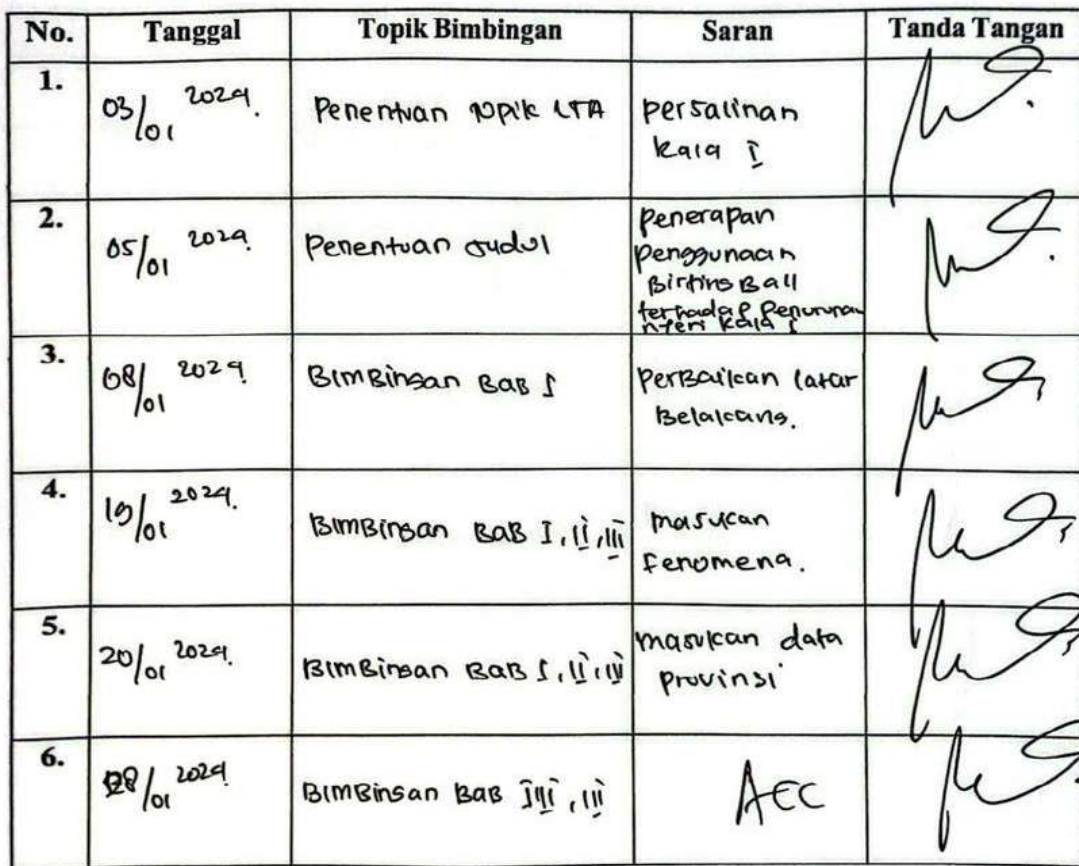 No. Tanggal Topik Bimbingan Saran Tanda Tangan
1. 03/01 2024. Penentuan topik LTA persalinan
kala I
2. 05/01 2024. Penentuan Judul penerapan
penggunaan
Birting Ball
terhadap penurunan
nyeri kala I
3. 08/01 2024 BimBingan BAB I perBaikan latar
Belakang.
4. 19/01 2024. BimBingan BAB I, II, III masukan
fenomena.
5. 20/01 2024. BimBingan BAB I, II, III masukan data
provinsi
6. /01 2024 BimBingan BAB , III ACC